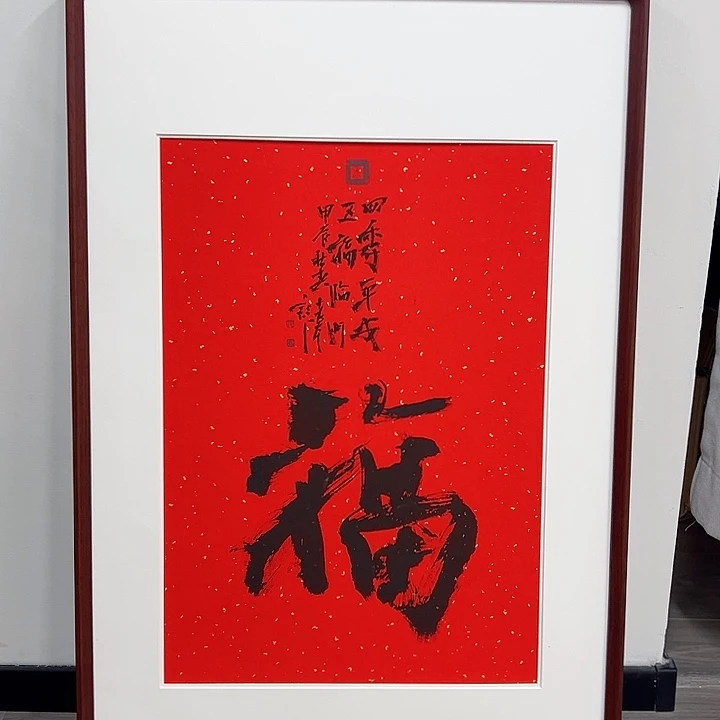 四季平安
五福临门
甲辰
福